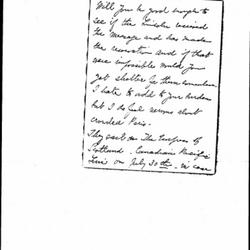 Will you be good enough to
see if the London received
the message and has made
the reservation and if that
were impossible would you
get shelter for them somewhere
I hate to add to your burdens
but I do feel nervous about
crowded Paris.
They sail on The Empress of
Scotland - Canadian Pacific
Line on July 30th. In case